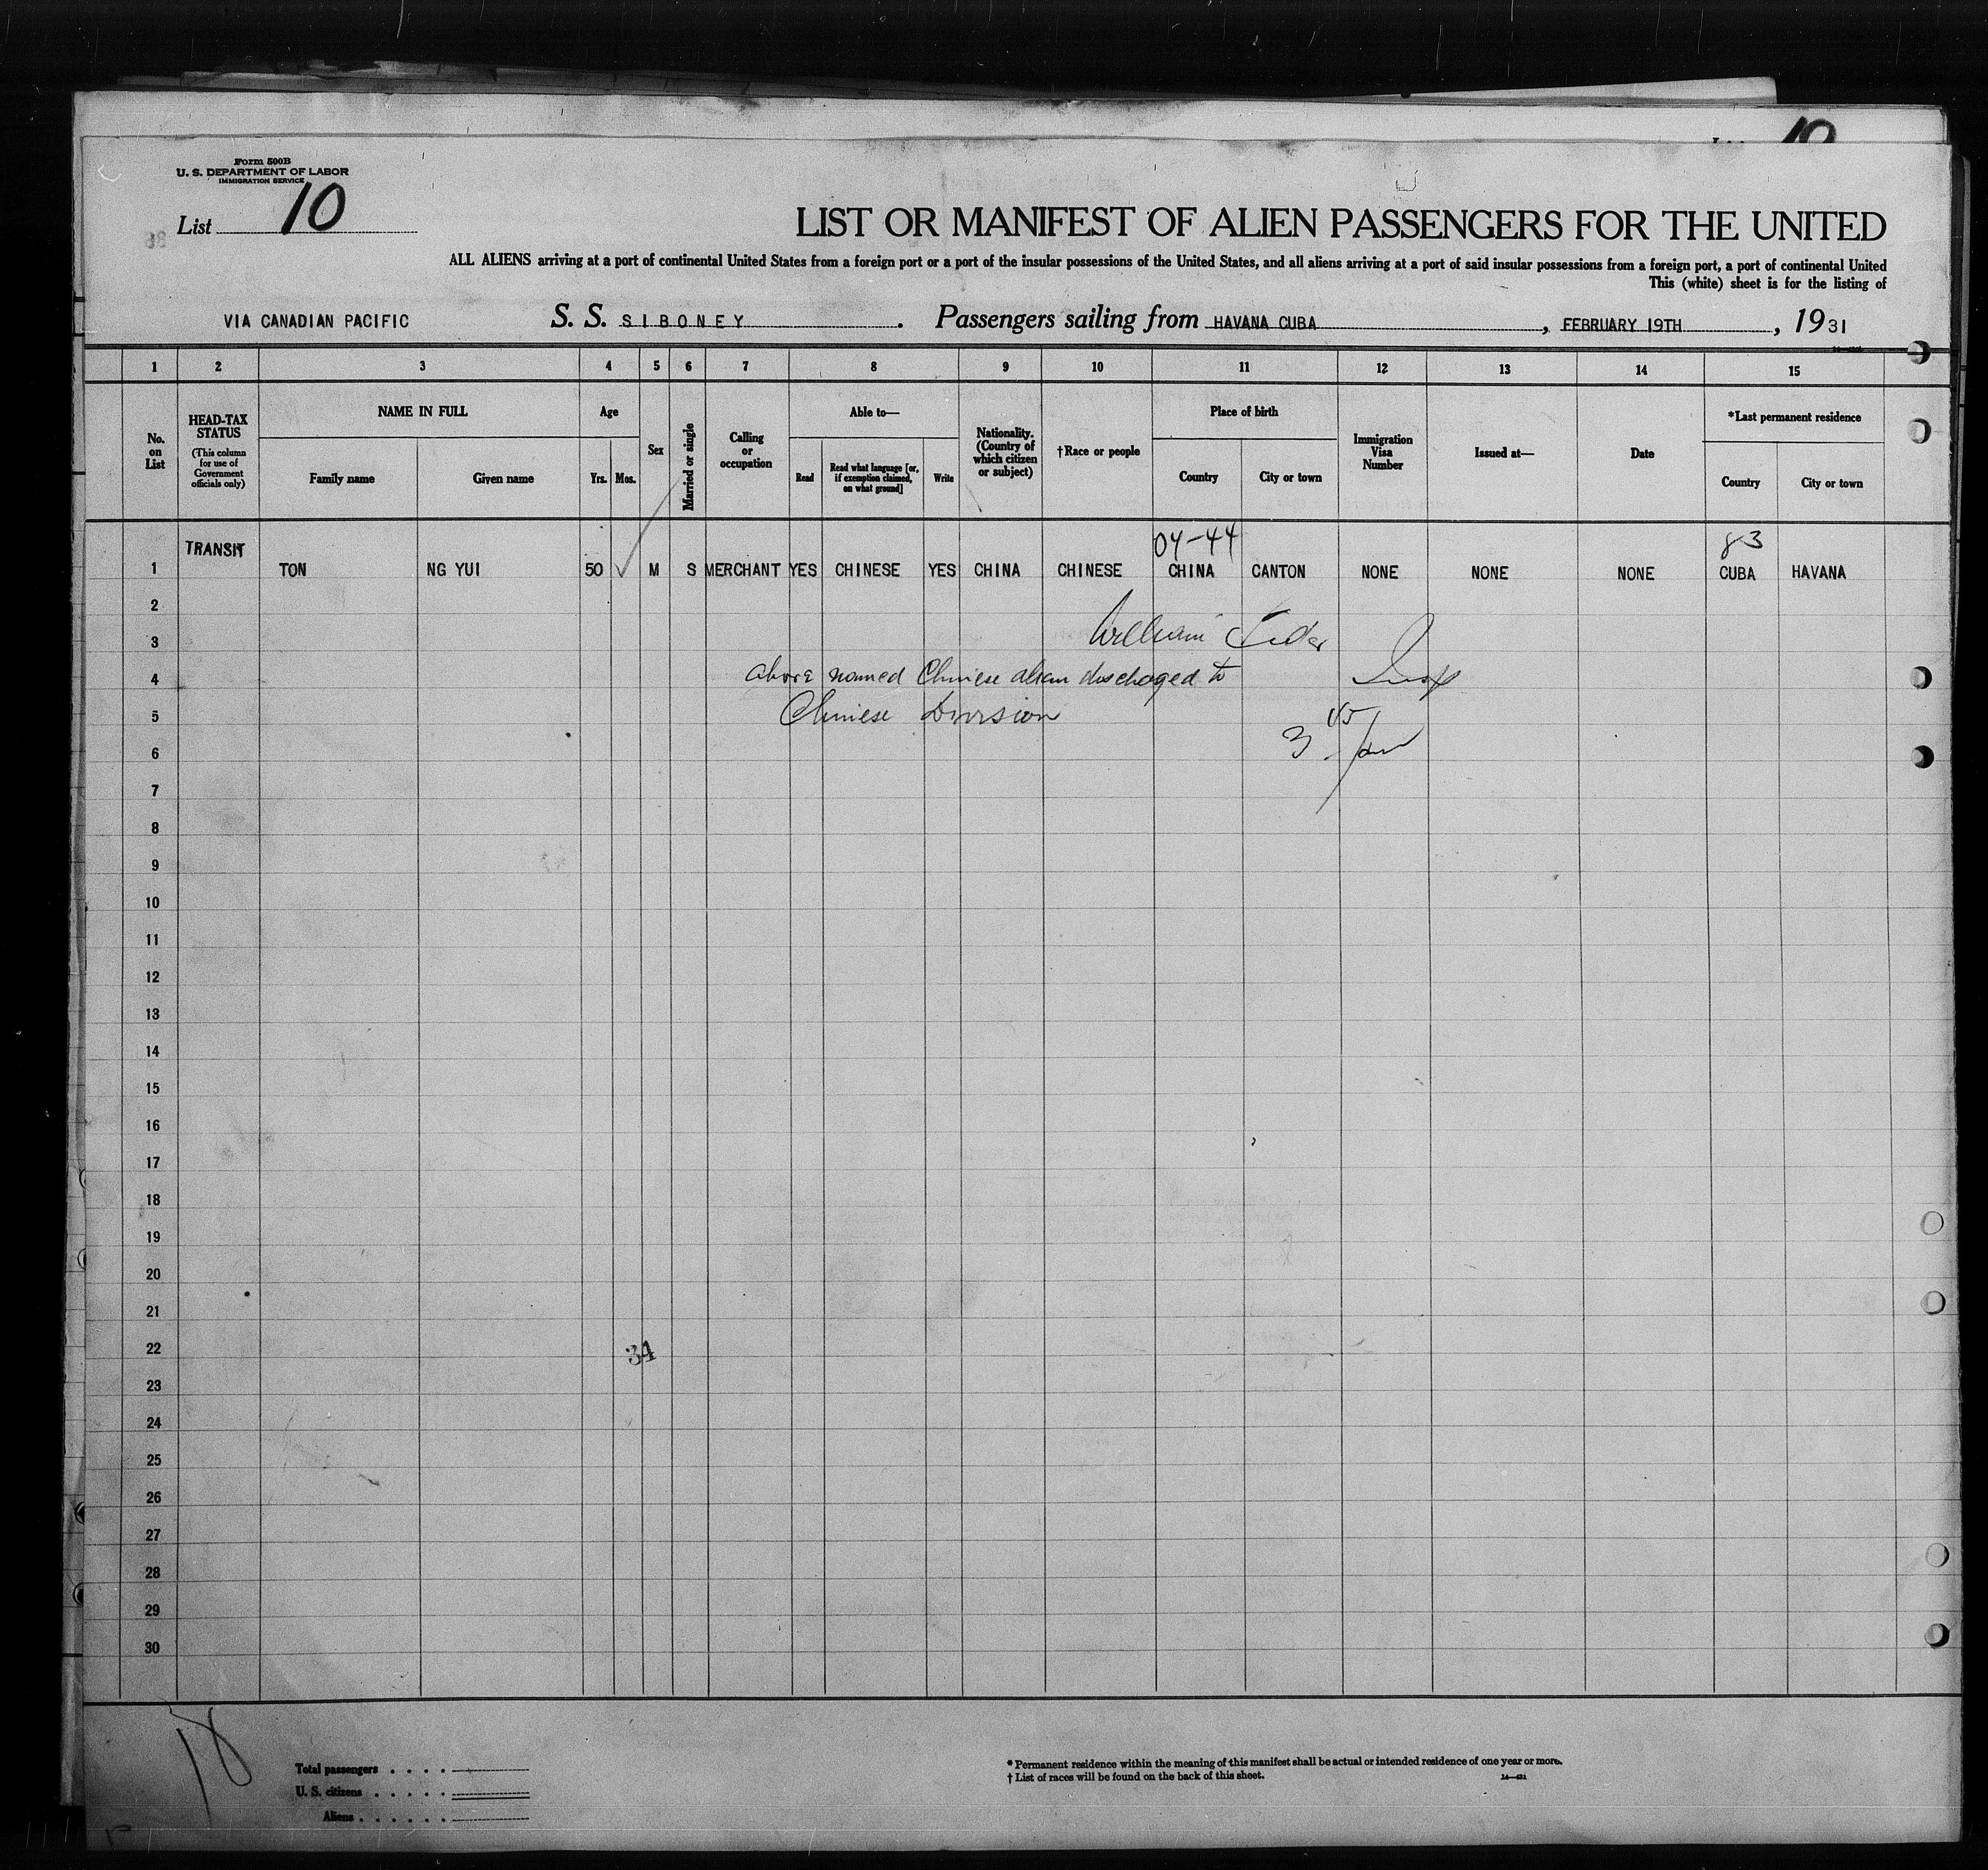 10
Form 500B
U. S. DEPARTMENT OF LABOR
IMMIGRATION SERVICE
List 10
LIST OR MANIFEST OF ALIEN PASSENGERS FOR THE UNITED
ALL ALIENS arriving at a port of continental United States from a foreign port or a port of the insular possessions of the United States, and all aliens arriving at a port of said insular possessions from a foreign port, a port of continental United
This (white) sheet is for the listing of
VIA CANADIAN PACIFIC S. S. SIBONEY. Passengers sailing from HAVANA CUBA, FEBRUARY 19TH, 1931
1 2 3 4 5 6 7 8 9 10 11 12 13 14 15
No. on List
HEAD-TAX STATUS (This column for use of Government officials only)
NAME IN FULL
Family name Given name
Age
Yrs. Mos.
Sex
Married or single
Calling or occupation
Able to—
Read Read what language [or, if exemption claimed, on what ground] Write
Nationality. (Country of which citizen or subject)
†Race or people
Place of birth
Country City or town
Immigration Visa Number
Issued at—
Date
*Last permanent residence
Country City or town
TRANSIT 04-44 83
1 TON NG YUI 50 M S MERCHANT YES CHINESE YES CHINA CHINESE CHINA CANTON NONE NONE NONE CUBA HAVANA
2
3 William
4 above named Chinese alien discharged to Insp
5 Chinese Division
6 3 45
7
8
9
10
11
12
13
14
15
16
17
18
19
20
21
22 34
23
24
25
26
27
28
29
30
18
Total passengers
U. S. citizens
Aliens
* Permanent residence within the meaning of this manifest shall be actual or intended residence of one year or more.
† List of races will be found on the back of this sheet.